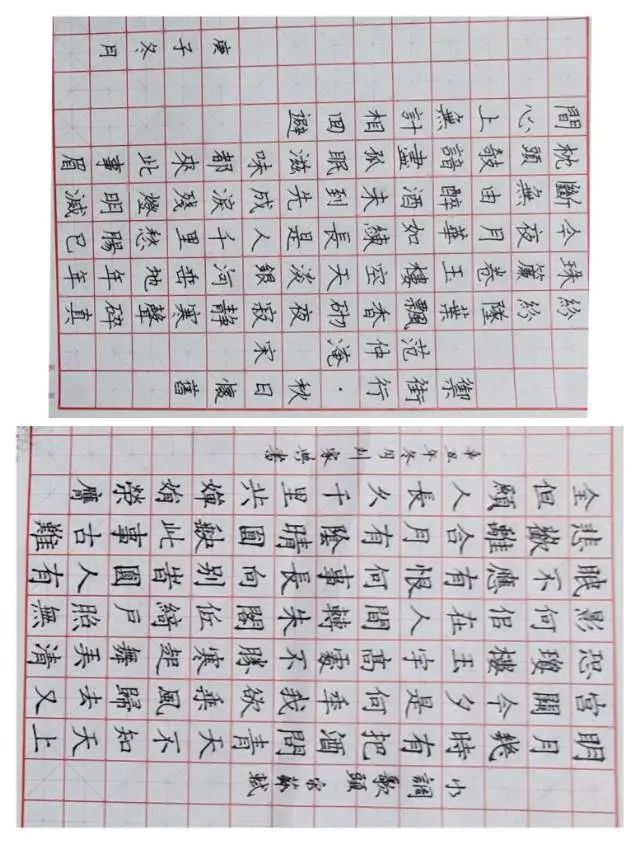 禦街行·秋日懷舊
宋
范仲淹
紛紛墜葉飄香砌夜寂静寒聲碎真
珠簾卷玉樓空天淡銀河垂地年年
今夜月華如練長是人千里愁腸已
斷無由醉酒未到先成淚殘燈明滅
枕頭敧諳盡孤眠滋味都來此事眉
間心上無計相回避
庚子冬月
水調歌頭 宋 蘇軾
明月幾時有把酒問青天不知天上
宮闕今夕是何年我欲乘風歸去又
恐瓊樓玉宇高處不勝寒起舞弄清
影何似在人間轉朱閣低綺戶照無
眠不應有恨何事長向別旹圓人有
悲歡離合月有陰晴圓缺此事古難
全但願人長久千里共嬋娟榮膺
辛丑年冬月刘家典書